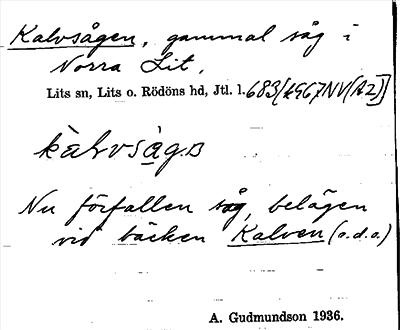 Kalvsågen, gammal såg i
Norra Lit.
Lits sn, Lits o. Rödöns hd, Jtl. l. 683 [kg67NV(A2)]
kàlvság.B
Nu förfallen såg, belägen
vid bäcken Kalven (o.d.o.)
A. Gudmundson 1936.